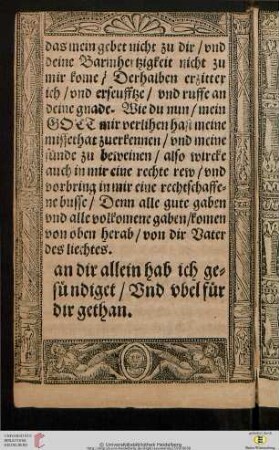 das mein gebet nicht zu dir / vnd
deine Barmhertzigkeit nicht zu
mir kome / Derhalben erzitter
ich / vnd erseufftze / vnd ruffe an
deine gnade. Wie du nun / mein
GOTT mir verlihen hast meine
missethat zuerkennen / vnd meine
sünde zu beweinen / also wircke
auch in mir eine rechte rew / vnd
vorbring in mir eine rechtschaffe-
ne busse / Denn alle gute gaben
vnd alle volkomene gaben / komen
von oben herab / von dir Vater
des liechtes.
an dir allein hab ich ge-
sündiget / Vnd vbel für
dir gethan.
© Universitätsbibliothek Heidelberg